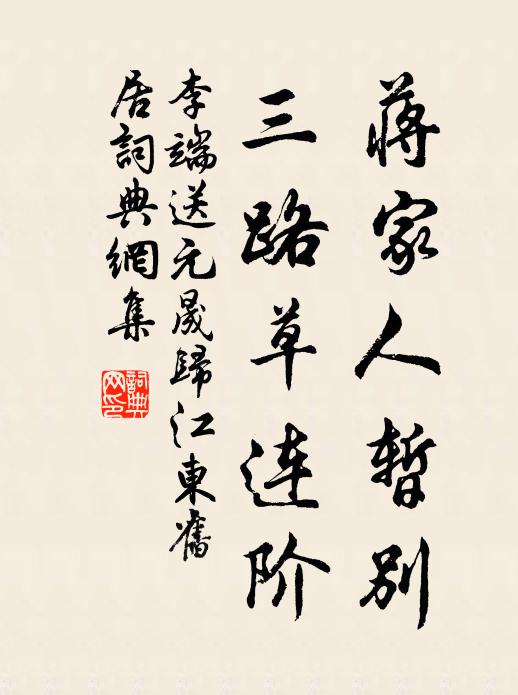 蒋家人暂别
三路草连阶
李端送元晟歸江東舊
居詞典網集
詞典
网印